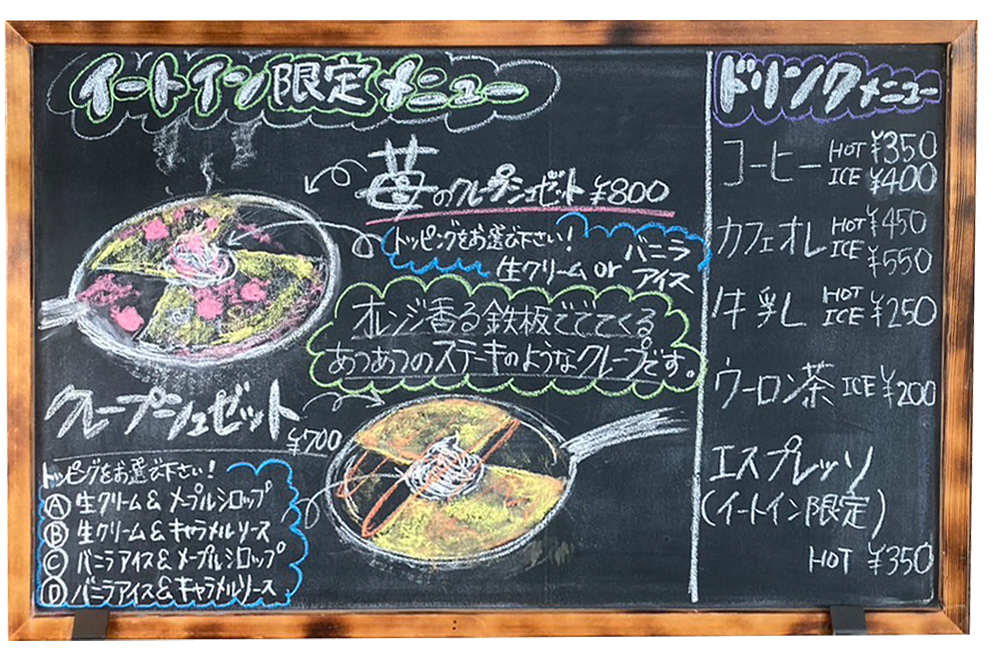 イートイン限定メニュー
苺のクレープシュゼット ¥800
トッピングをお選び下さい!
生クリーム or バニラアイス
オレンジ香る鉄板ででてくる
あつあつのステーキのようなクレープです。
クレープシュゼット
¥700
トッピングをお選び下さい!
Ⓐ 生クリーム & メープルシロップ
Ⓑ 生クリーム & キャラメルソース
Ⓒ バニラアイス & メープルシロップ
Ⓓ バニラアイス & キャラメルソース
ドリンクメニュー
コーヒー HOT ¥350
ICE ¥400
カフェオレ HOT ¥450
ICE ¥550
牛乳 HOT ICE ¥250
ウーロン茶 ICE ¥200
エスプレッソ
(イートイン限定)
HOT ¥350